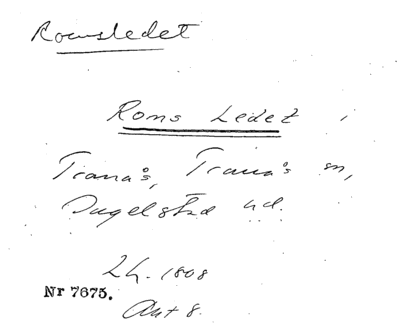 Romsledet
Roms Ledet i
Tranås, Tranås sn,
Ingelstad hd.
2 h. 1808
Nr 7675.
Akt 8.